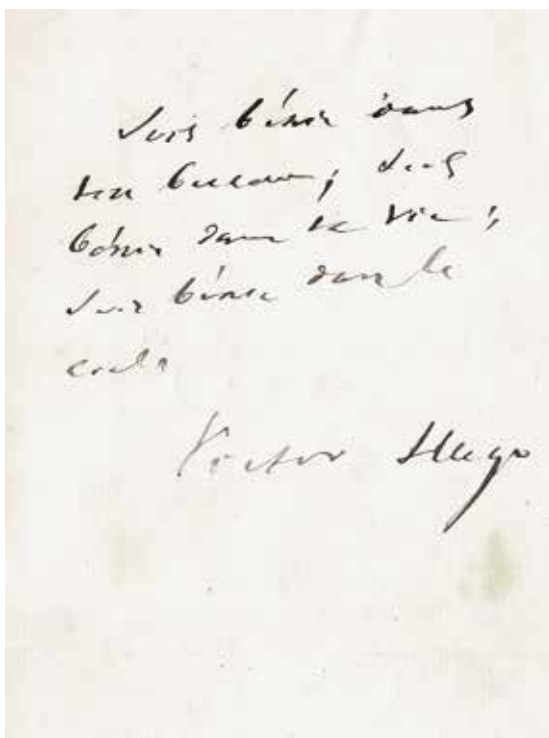 Sois bénie dans
ton berceau ; sois
bénie dans ta vie ;
sois bénie dans le
Victor Hugo